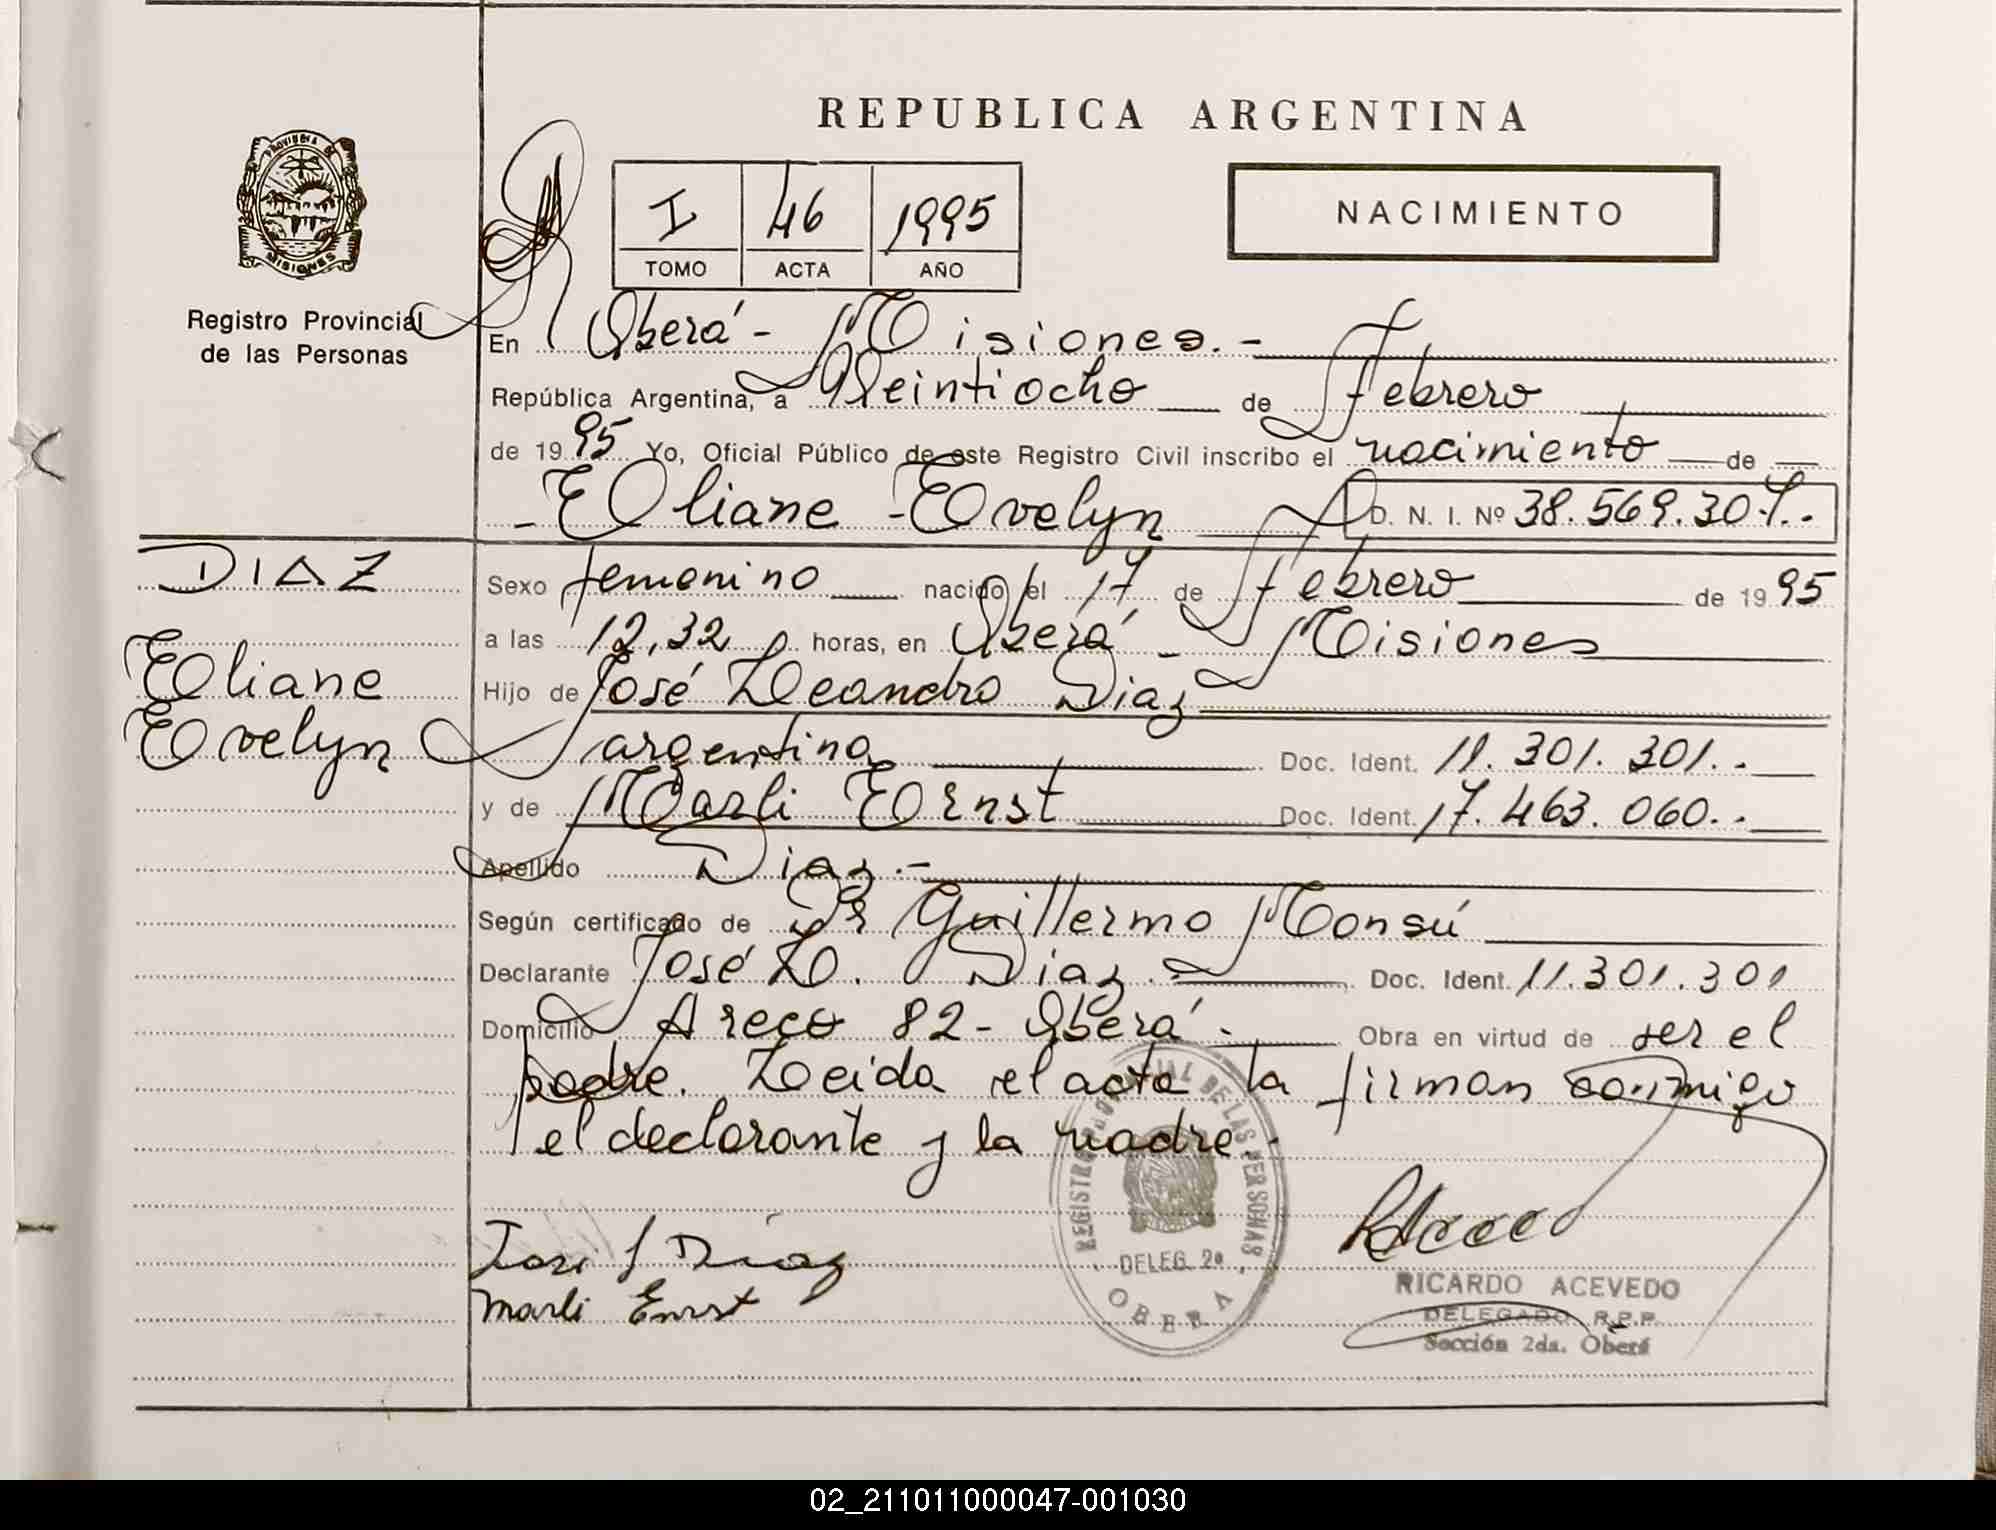 REPUBLICA ARGENTINA
PROVINCIA DE
MISIONES
Registro Provincial
de las Personas
I 46 1995
TOMO ACTA AÑO
NACIMIENTO
En Oberá - Misiones. -
República Argentina, a Veintiocho de Febrero
de 1995 Yo, Oficial Público de este Registro Civil inscribo el nacimiento de
- Eliane Evelyn D. N. I. Nº 38.569.307..
DIAZ
Eliane
Evelyn
Sexo femenino nacido el 17 de Febrero de 1995
a las 12,32 horas, en Oberá - Misiones
Hijo de José Leandro Diaz
argentino Doc. Ident. 11.301.301..
y de Marli Ernst Doc. Ident. 17.463.060..
Apellido Diaz.-
Según certificado de Dr Guillermo Monsú
Declarante José L. Diaz. Doc. Ident. 11.301.301
Domicilio Areco 82 - Oberá - Obra en virtud de ser el
padre. Leida el acta la firman conmigo
el declarante y la madre.
José L Diaz
Marli Ernst
REGISTRO PROVINCIAL DE LAS PERSONAS
DELEG. 2ª
OBERA
RICARDO ACEVEDO
DELEGADO R.P.P.
Sección 2da. Oberá
02_211011000047-001030